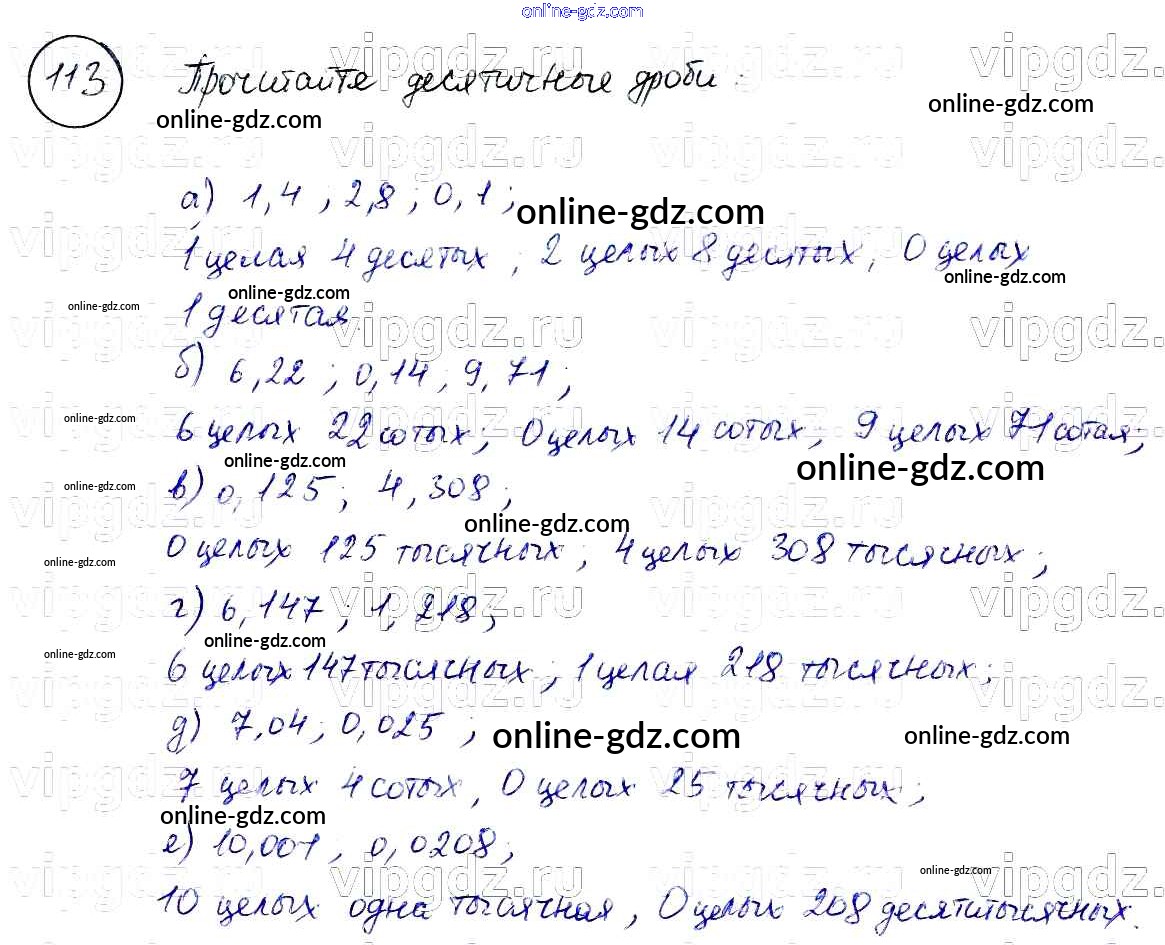 online-gdz.com
113 Прочитайте десятичные дроби:
online-gdz.com online-gdz.com
vipgdz.ru vipgdz.ru vipgdz.ru vipgdz.
а) 1,4 ; 2,8 ; 0,1 ;
online-gdz.com
1 целая 4 десятых ; 2 целых 8 десятых, 0 целых
online-gdz.com online-gdz.com online-gdz.com
1 десятая.
б) 6,22 ; 0,14 ; 9,71 ;
online-gdz.com
6 целых 22 сотых; 0 целых 14 сотых; 9 целых 71 сотая;
online-gdz.com online-gdz.com
online-gdz.com
в) 0,125 ; 4,308 ;
online-gdz.com
0 целых 125 тысячных ; 4 целых 308 тысячных ;
online-gdz.com
г) 6,147 ; 1,218 ;
online-gdz.com
6 целых 147 тысячных ; 1 целая 218 тысячных ;
online-gdz.com
д) 7,04 ; 0,025 ;
online-gdz.com online-gdz.com
7 целых 4 сотых, 0 целых 25 тысячных ;
online-gdz.com
е) 10,001 , 0,0208 ;
online-gdz.com
10 целых одна тысячная , 0 целых 208 десятитысячных.